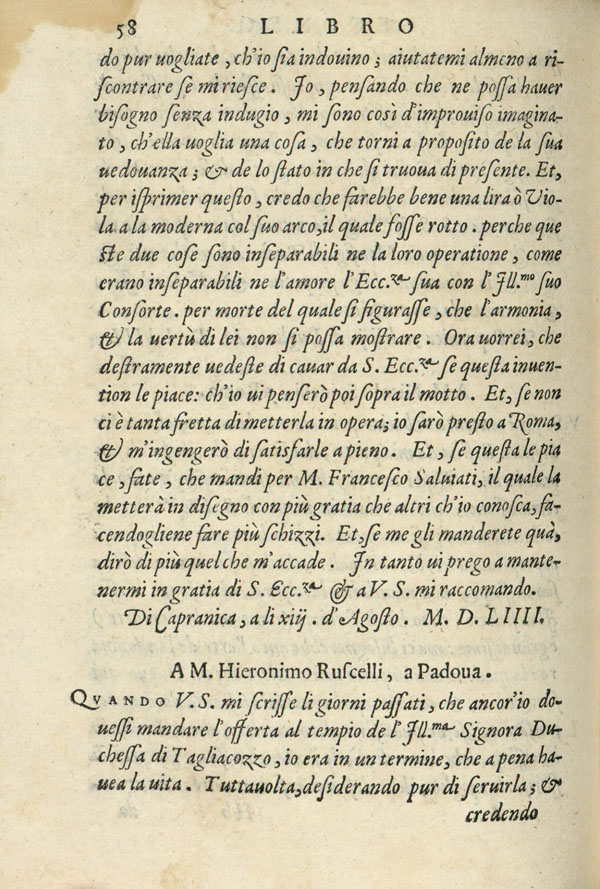 58 LIBRO
do pur uogliate, ch'io sia indouino; aiutatemi almeno a ri-
scontrare se mi riesce. Io, pensando che ne possa hauer
bisogno senza indugio, mi sono così d'improuiso imagina-
to, ch'ella uoglia una cosa, che torni a proposito de la sua
uedouanza; & de lo stato in che si truoua di presente. Et,
per isprimer questo, credo che farebbe bene una lira ò Vio-
la a la moderna col suo arco, il quale fosse rotto. perche que
ste due cose sono inseparabili ne la loro operatione, come
erano inseparabili ne l'amore l'Ecc.za sua con l'Ill.mo suo
Consorte. per morte del quale si figurasse, che l'armonia,
& la uertù di lei non si possa mostrare. Ora uorrei, che
destramente uedeste di cauar da S. Ecc.za se questa inuen-
tion le piace: ch'io ui penserò poi sopra il motto. Et, se non
ci è tanta fretta di metterla in opera; io sarò presto a Roma,
& m'ingengerò di satisfarle a pieno. Et, se questa le pia
ce, fate, che mandi per M. Francesco Saluiati, il quale la
metterà in disegno con più gratia che altri ch'io conosca, fa-
cendogliene fare più schizzi. Et, se me gli manderete quà,
dirò di più quel che m'accade. In tanto ui prego a mante-
nermi in gratia di S. Ecc.za & a V. S. mi raccomando.
Di Capranica, a li xiij. d'Agosto. M. D. LIIII.
A M. Hieronimo Ruscelli, a Padoua.
QVANDO V. S. mi scrisse li giorni passati, che ancor'io do-
uessi mandare l'offerta al tempio de l'Ill.ma Signora Du-
chessa di Tagliacozzo, io era in un termine, che a pena ha-
uea la uita. Tuttauolta, desiderando pur di seruirla; &
credendo